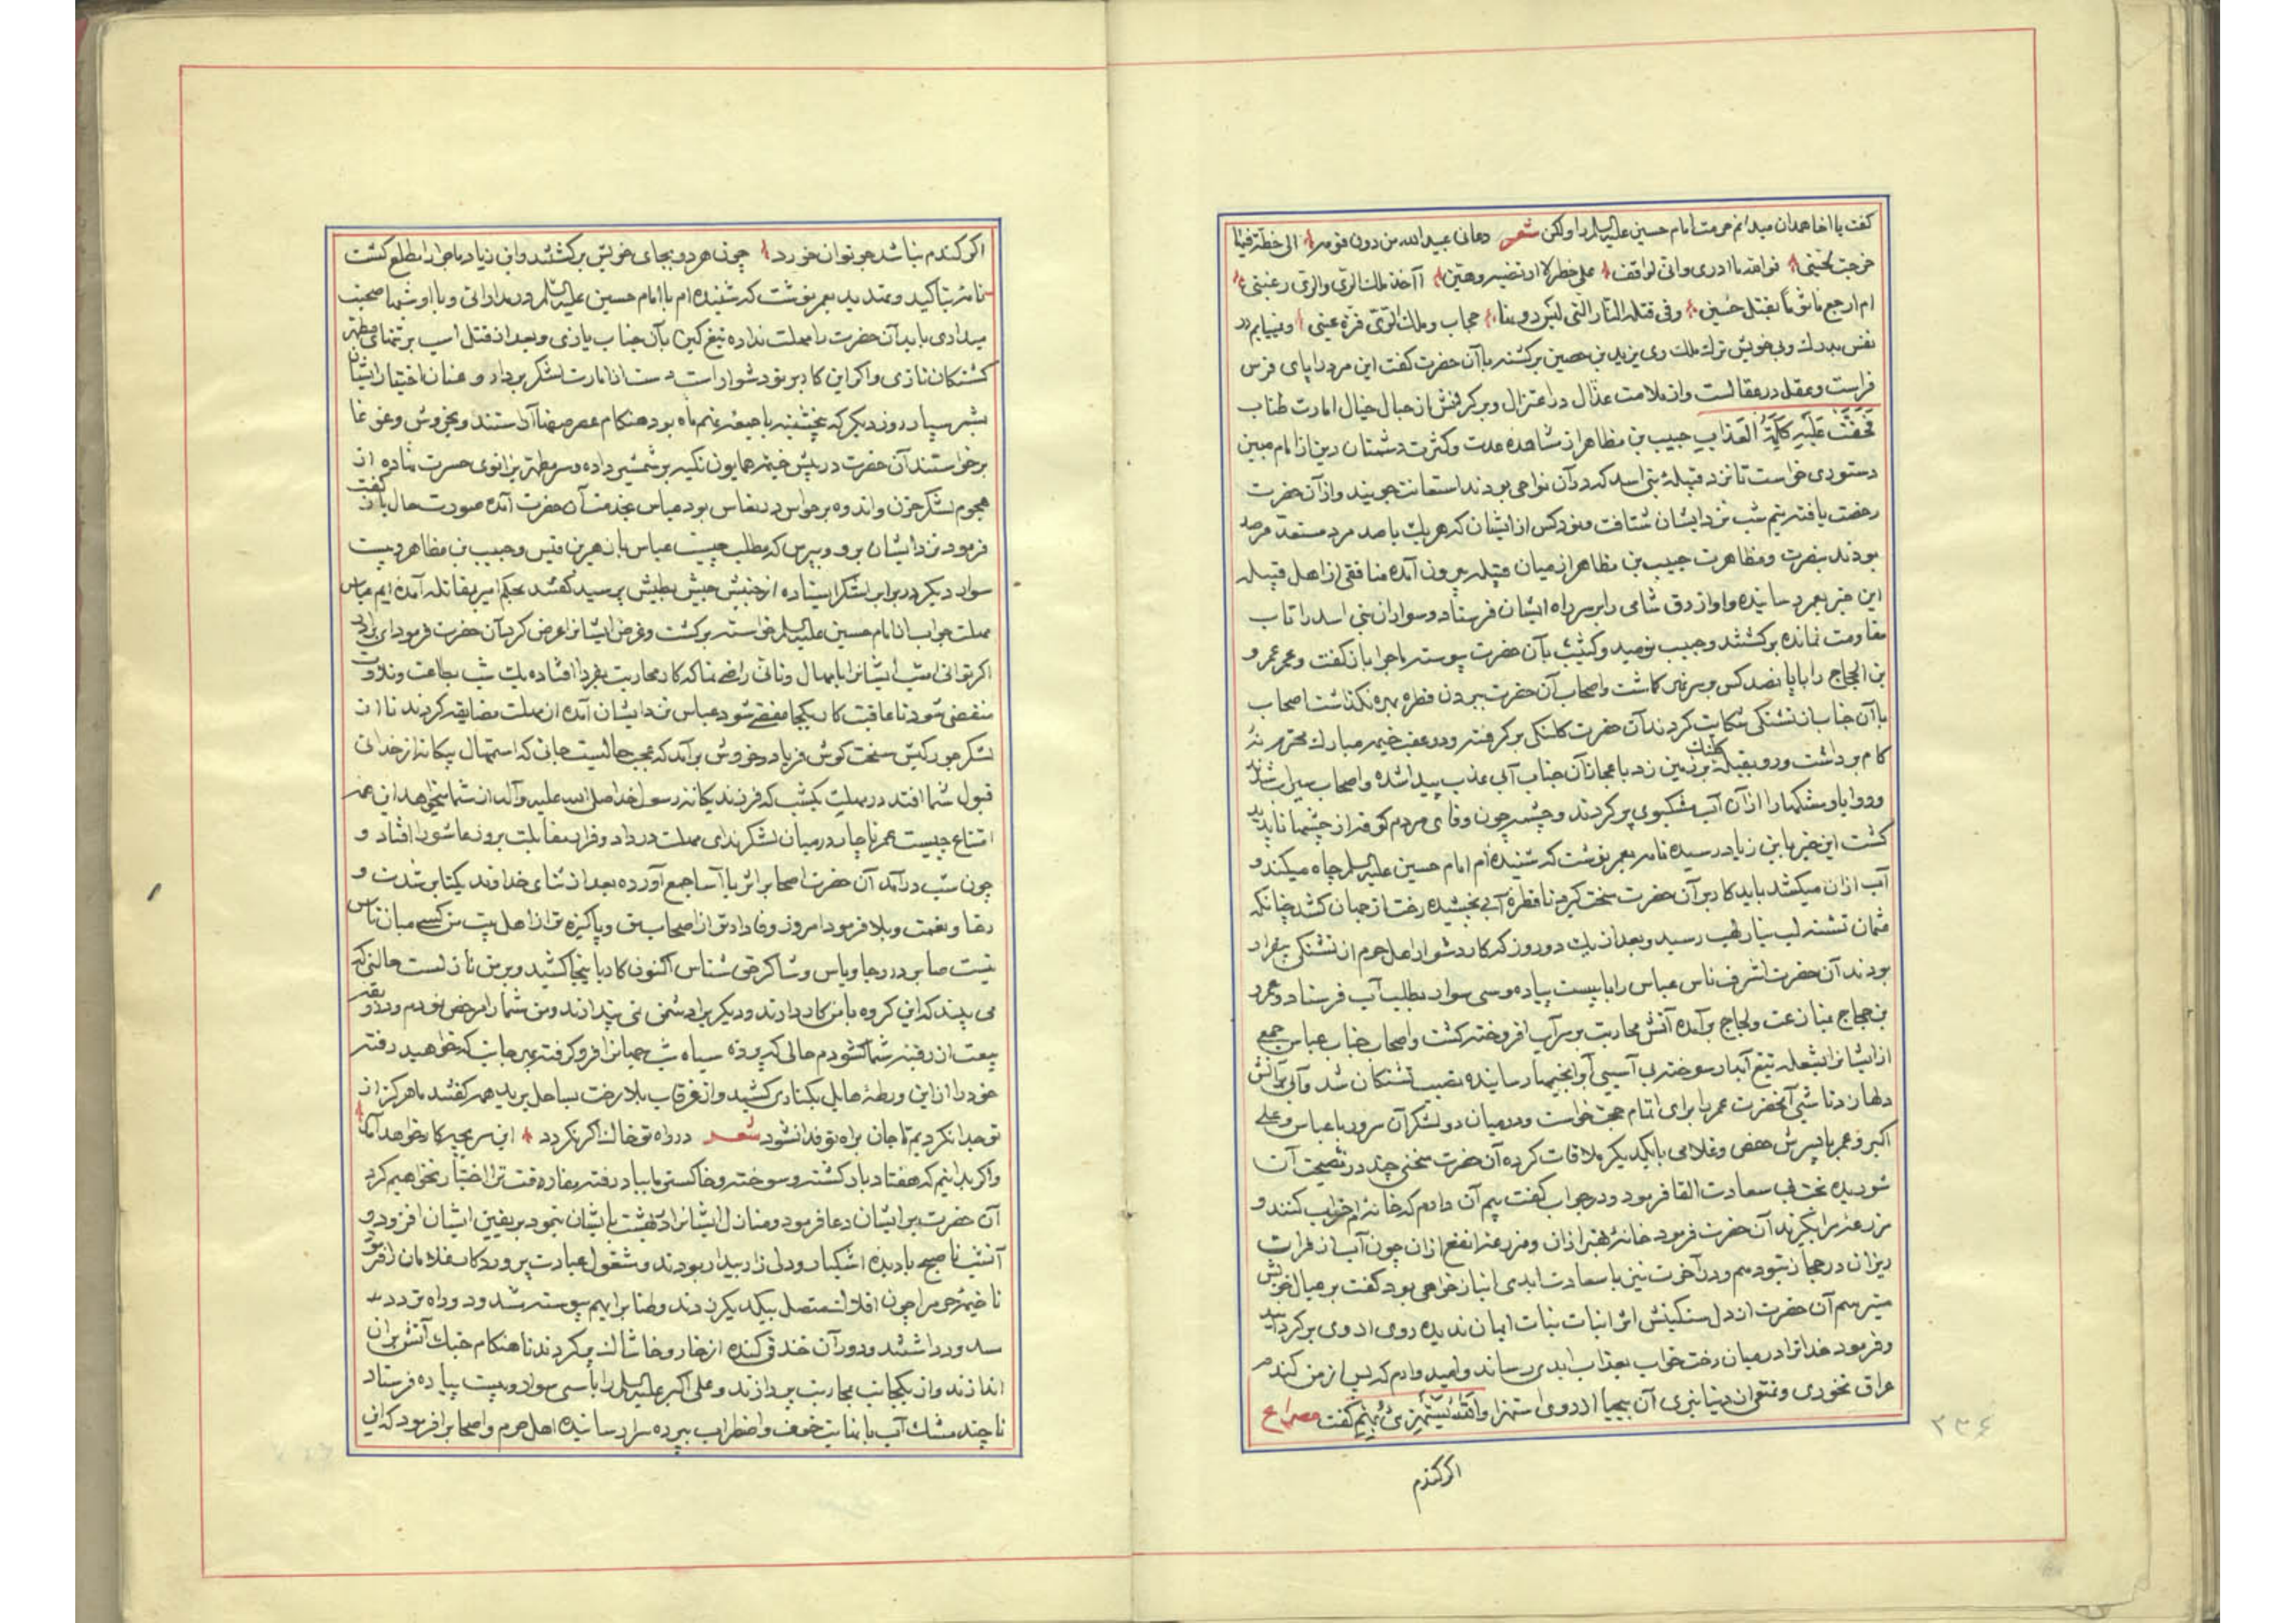 کفت یا اخا همدان میدانم حرمت امام حسین علیه السلم را ولکن شعر دعانی عبید الله من دون قومه الی خطة فیها
خرجت لحینی فوالله ما ادری وانی لواقف علی خطر لا ارتضیه ومین أآخذ ملك الری والری رغبتی
ام ارجع ماثوماً بقتل حسین وفی قتله النار التی لیس دونها حجاب وملك الری قرة عینی ونمییابم در
نفس بدرك وبی خویش ترك ملك ری یزید بن حصین برکشته با آن حضرت کفت این مرد را پای فرس
فراست وعقل در عقالست واز ملامت عذال در اعتزال وبرکرفتش از حبال خیال امارت طناب
فَحَقَّتْ عَلَیْهِ کَلِمَةُ الْعَذابِ حبیب بن مظاهر از مشاهده عدت وکثرت دشمنان دین از امام مبین
دستوری خواست تا نزد قبیلهٔ بنی اسد که در آن نواحی بودند استعانت جوید واز آن حضرت
رخصت یافته نیم شب نزد ایشان شتافت ونود کس از ایشان که هر یك با صد مرد مستعد مرصد
بودند بنصرت ومظاهرت حبیب بن مظاهر از میان قبیله بیرون آمده منافقی از اهل قبیله
این خبر بعمر رسانیده واو ازرق شامی را بر سر راه ایشان فرستاد وسواران بنی اسد را تاب
مقاومت نمانده برکشتند وحبیب نومید وکئیب بآن حضرت پیوسته ماجرا باز کفت وعمر عمرو
بن الحجاج را با پانصد کس بر سر نهر کماشت واصحاب آن حضرت ببردن قطره بهره نکذاشت اصحاب
با آن جناب از تشنکی شکایت کردند آن حضرت کلنکی برکرفته ودر عقب خیمه مبارك محترم نه
کام برداشت ورو بقبله کلنك بر زمین زد باعجاز آن جناب آبی عذب پیدا شده واصحاب سیراب شدند
وروایا ومشکها را از آن آب مشکبوی پر کردند وچشمه چون وفای مردم کوفه از چشمها ناپدید
کشت این خبر بابن زیاد رسیده نامه بعمر نوشت که شنیده ام امام حسین علیه السلم چاه میکند و
آب از آن میکشد باید کار بر آن حضرت سخت کیری تا قطرهٔ آبی نچشیده رخت از جهان کشد چنانکه
عثمان تشنه لب بنار لهب رسید وبعد از یك دو روز که کار دشوار واهل حرم از تشنکی بیقرار
بودند آن حضرت اشرف ناس عباس را با بیست پیاده وسی سوار بطلب آب فرستاد وعمرو
بن حجاج بمنازعت ولجاج بر آمده آتش محاربت بر سر آب افروخته کشت واصحاب جناب عباس جمعی
از ایشانرا بشعله تیغ آبدار سوخته بی آسیبی آب بخیمها رسانیده نصیب تشنکان شد وآبی بر آتش
دلها زدند شبی آنحضرت عمر را برای اتمام حجت خواست ودر میان دو لشکر آن سرور با عباس وعلی
اکبر وعمر با پسرش حفص وغلامی با یکدیکر ملاقات کرده آن حضرت سخنی چند در نصیحت آن
شوریده بخت بی سعادت القا فرمود ودر جواب کفت بیم آن دارم که خانه ام خراب کنند و
مزرعه ام را بکیرند آن حضرت فرمود خانهٔ بهتر از آن ومزرعه انفع از آن چون آب از فرات
ریزان در حجاز بتو دهم ودر آخرت نیز با سعادت ابدی انباز خواهی بود کفت بر عیال خویش
میترسم آن حضرت از دل سنکینش اثر انبات نبات ایمان ندیده روی از وی بر کردانید
وفرمود خدا ترا در میان رخت خواب بعذاب ابدی رساند وامید دارم که پس از من کندم
عراق نخوری وتمتع از دنیا نبری آن بیحیا از روی استهزا وَاللّهُ یَسْتَهْزِئُ بِهِمْ کفت مصراع
۲۳۴
اکر کندم
اکر کندم نباشد جو توان خورد چون هر دو بجای خویش برکشتند وابن زیاد ماجرا مطلع کشت
نامه بتاکید وتهدید بعمر نوشت که شنیده ام با امام حسین علیه السلم در مدارائی وبا او شبها صحبت
میداری باید آن حضرت را مهلت نداده تیغ کین بآن جناب یازی وبعد از قتل اسب بر تنهای مطهر
کشتکان تازی واکر این کار بر تو دشوار است دست از امارت لشکر بردار وعنان اختیار ایشان
بشمر سپار روز دیکر که پنجشنبه یا جمعه نهم ماه بود هنکام عصر صفها آراستند وبخروش وغوغا
برخواستند آن حضرت در پیش خیمه همایون تکیه بر شمشیر داده وسر مطهر بزانوی حسرت نهاده از
هجوم لشکر حزن واندوه بر حواس در نعاس بود عباس بخدمت آن حضرت آمده صورت حال باز کفت
فرمود نزد ایشان برو وبپرس که مطلب چیست عباس با زهیر بن قیس وحبیب بن مظاهر وبیست
سوار دیکر در برابر لشکر ایستاده از جنبش جیش بطیش پرسید کفتند بحکم امیر بمقاتله آمده ایم عباس
مهلت جواب از امام حسین علیه السلم خواسته برکشت وغرض ایشانرا عرض کرد آن حضرت فرمود ای برادر
اکر توانی امشب ایشانرا بامهال وتانی راضی نما که کار محاربت بفردا افتاده یك شب بطاعت وتلاوت
منقضی شود تا عاقبت کار بکجا مفضی شود عباس نزد ایشان آمده از مهلت مضایقه کردند تا از
لشکر جور کیش سخت کوش فریاد وخروش بر آمد که عجب حالیست جائی که استمهال بیکانه از خدائی
قبول شما افتد در مهلت یکشب که فرزند یکانه رسول خدا صلی الله علیه وآله از شما میخواهد این همه
امتناع چیست عمر ناچار در میان لشکر ندای مهلت در داد وقرار مقابلت بروز عاشورا افتاد و
چون شب در آمد آن حضرت اصحابرا ثریا آسا جمع آورده بعد از ثنای خداوند یکتا بر شدت و
رخا ونعمت وبلا فرمود امروز وفادارتر از اصحاب من وپاکیزه تر از اهل بیت من کسی میان ناس
نیست صابر در رجا ویاس وشاکر حق شناس اکنون کار باینجا کشید وبر من نازلست حالتی که
می بینید که این کروه با من کار دارند ودیکر برا دشمن نمی پندارند ومن شما را مرخص نمودم وربقه
بیعت از رقبه شما کشودم حالی که پرده سیاه شب جهانرا فرو کرفته بهر جانب که خواهید رفته
خود را از این ورطهٔ هایل بکناری کشید واز غرقاب بلا رخت بساحل برید همه کفتند ما هرکز از
تو جدا نکردیم تا جان براه تو فدا نشود شعر در راه تو خاك اکر نکردد این سر بچه کار خواهد آمد
واکر بدانیم که هفتاد بار کشته وسوخته وخاکستر ما بباد رفته مفارقت ترا اختیار نخواهیم کرد
آن حضرت بر ایشان دعا فرمود ومنازل ایشانرا در بهشت بایشان بنمود بر یقین ایشان افزود و
آنشب تا صبح با دیده اشکبار ودلی زار بیدار بودند ومشغول عبادت پروردکار غلامان را فرمود
تا خیمه حرم را چون افلاك متصل بیکدیکر زدند وطنابرا بهم پیوسته شد ودو راه تردد
سد ورداشتند ودور آن خندقی کنده از خار وخاشاك پر کردند تا هنکام جنك آتش بر آن
اندازند واز یکجانب محاربت پردازند وعلی اکبر علیه السلم را با سی سوار وبیست پیاده فرستاد
تا چند مشك آب با نهایت خوف واضطراب ببرده سرا رسانیده اهل حرم واصحابرا فرمود که این